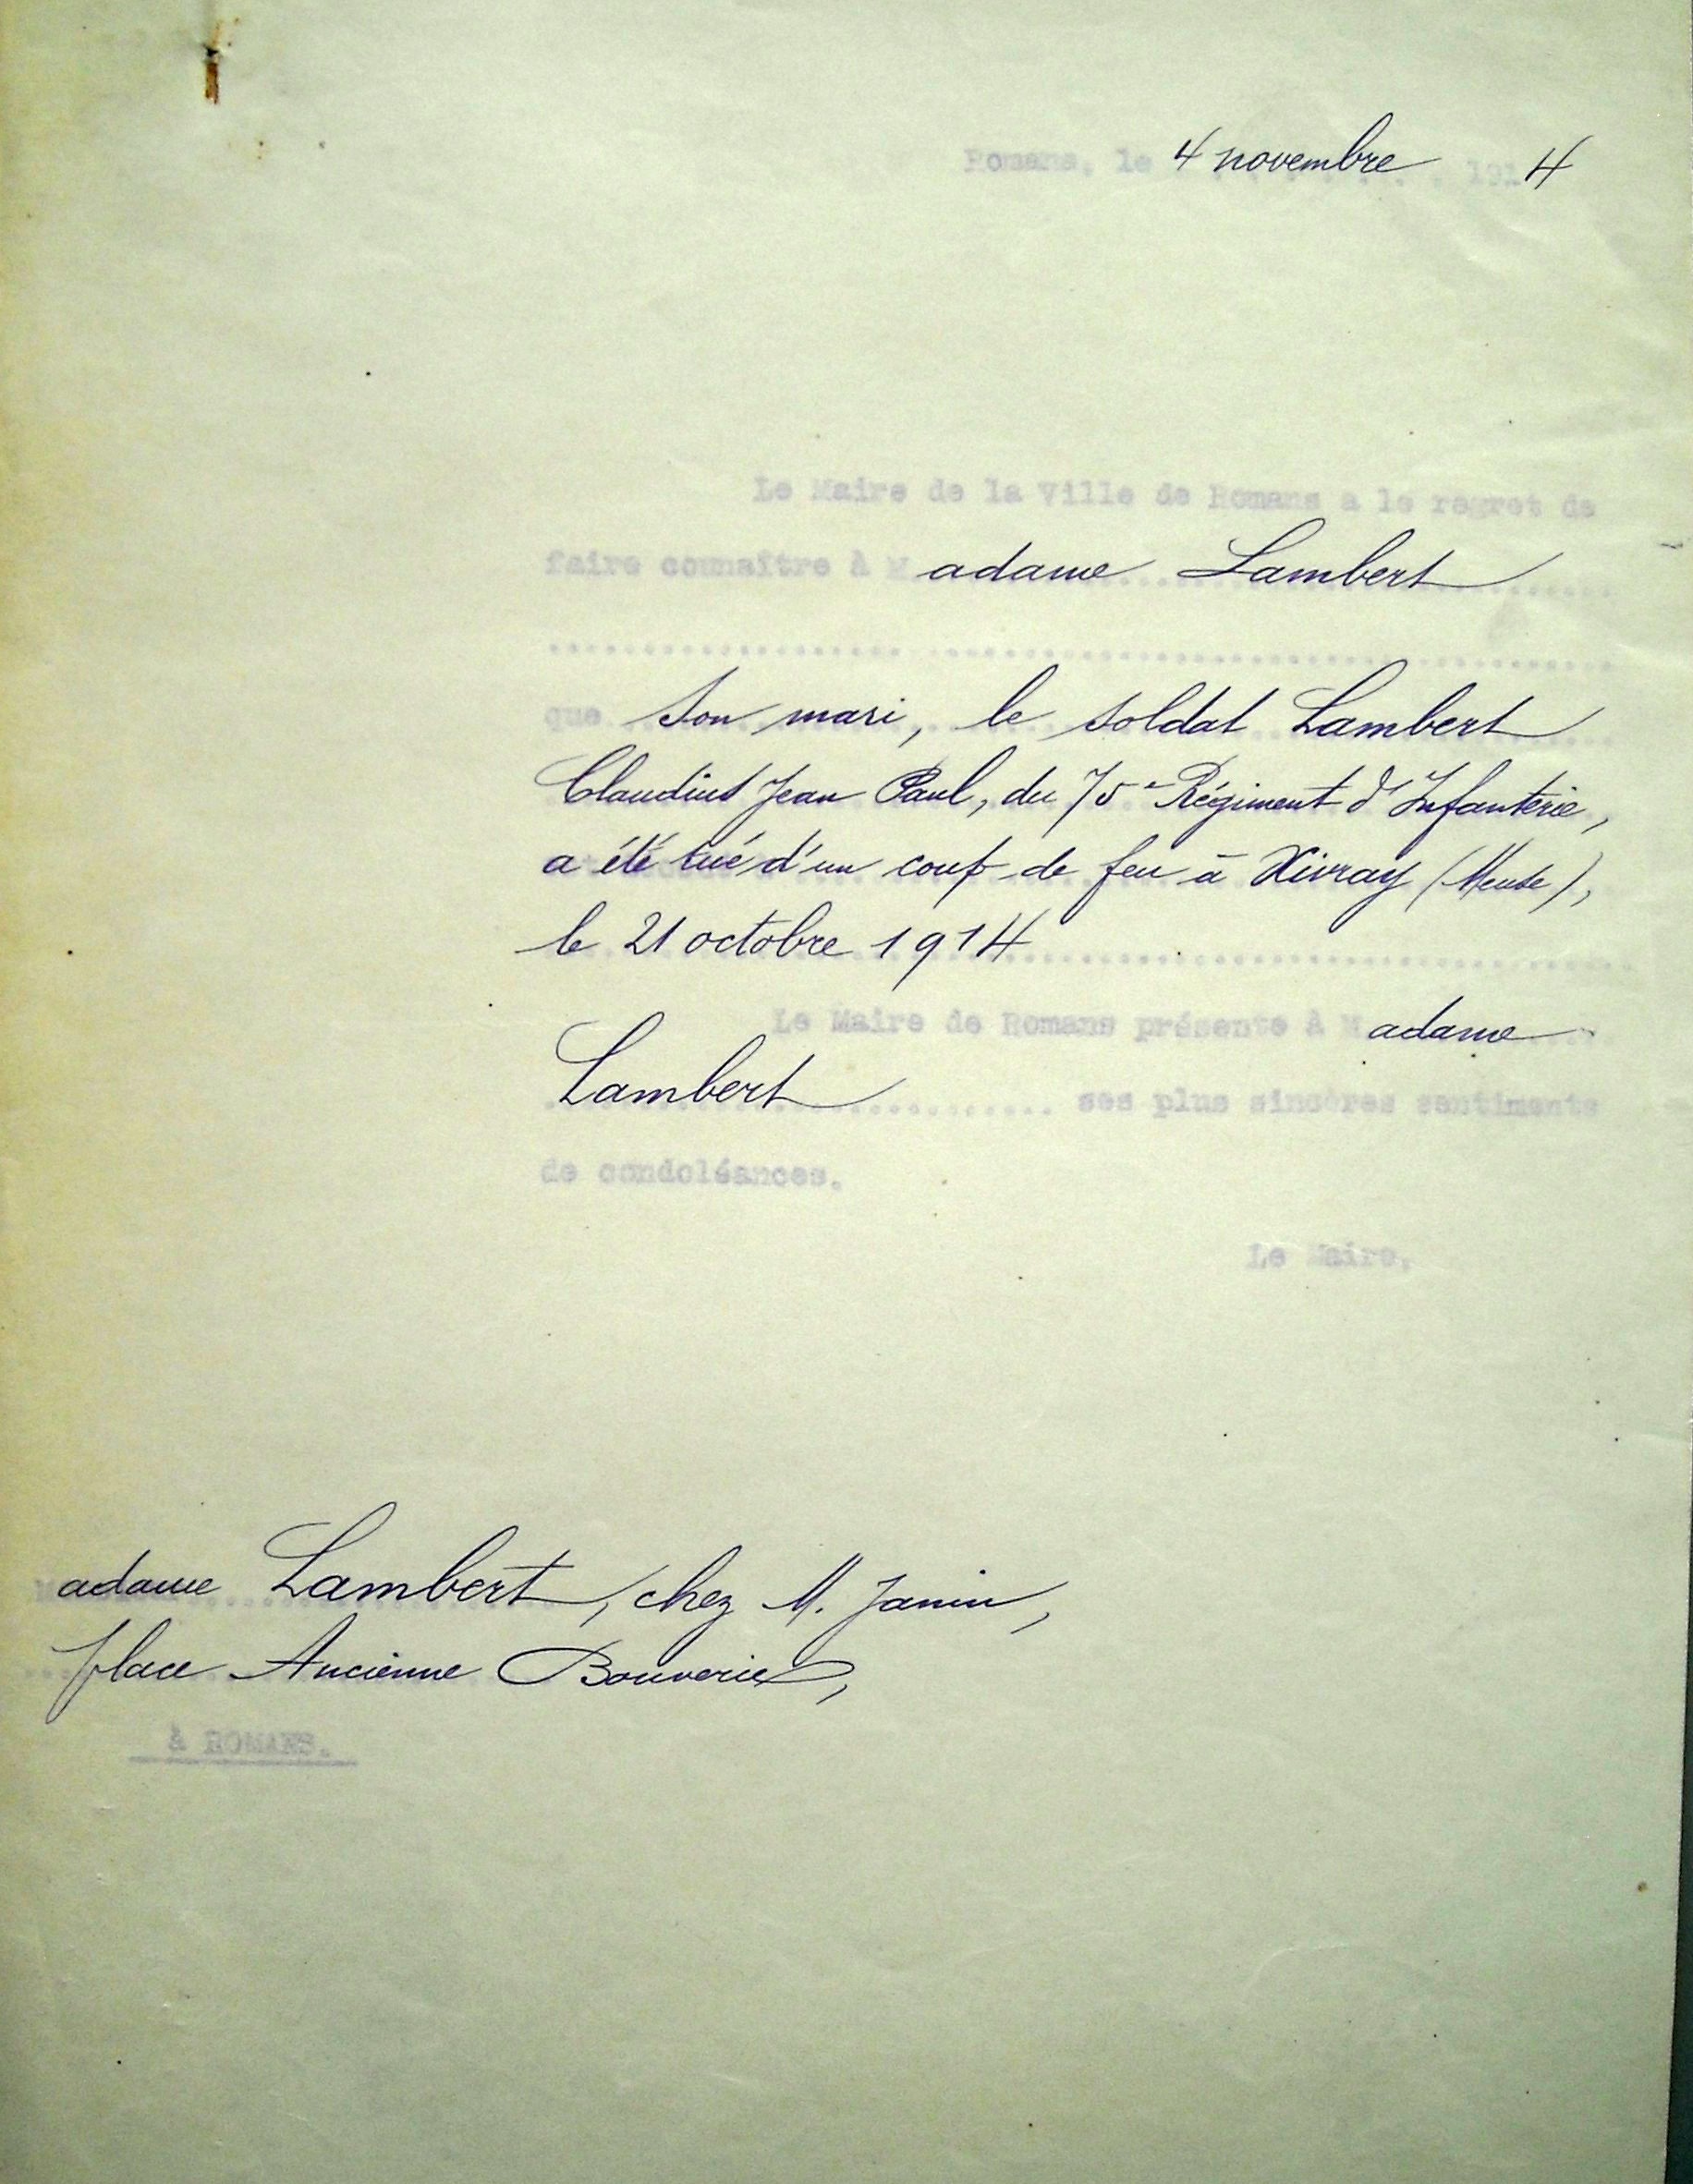 Romans, le 4 novembre 1914
Le Maire de la Ville de Romans a le regret de
faire connaître à Madame Lambert
que son mari, le soldat Lambert
Claudius Jean Paul, du 75e Régiment d'Infanterie,
a été tué d'un coup de feu à Xivray (Meuse),
le 21 octobre 1914
Le Maire de Romans présente à Madame
Lambert ses plus sincères sentiments
de condoléances.
Le Maire,
Madame Lambert, chez M. Janin,
place Ancienne Bouverie,
à ROMANS.